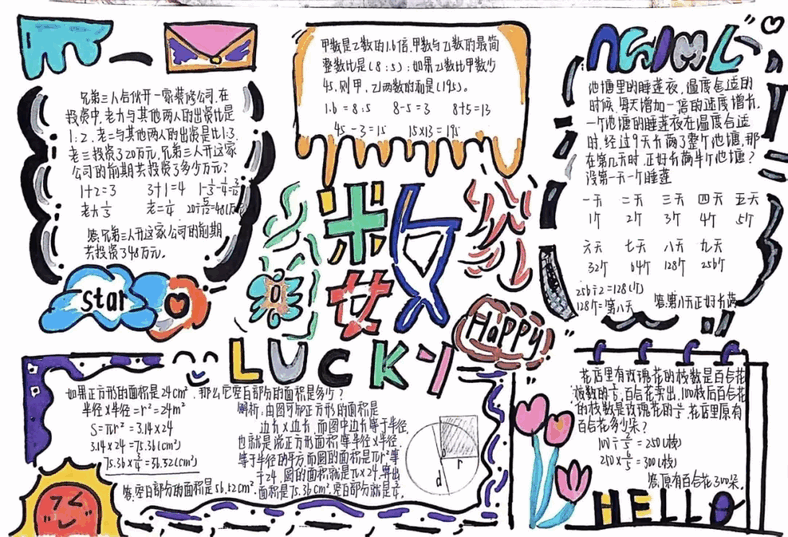 兄弟三人合伙开一家装修公司,在
投资中,老大与其他两人的出资比是
1:2,老二与其他两人的出资是比1:3,
老三投资了20万元,兄弟三人开这家
公司的前期共投资了多少万元?
1+2=3 3+1=4
老大 1/3 老二=1/4
答:兄弟三人开这家公司的前期
共投资了48万元。
star
甲数是乙数的1.6倍,甲数与乙数的最简
整数比是(8:5);如果乙数比甲数少
45,则甲、乙两数的和是(195)。
1.6=8:5 8-5=3 8+5=13
45÷3=15 15×13=195
池塘里的睡莲夜,温度合适的
时候,每天增加一倍的速度增长,
一个池塘的睡莲夜在温度合适
时,经过9天长满了整个池塘,那
在第几天时,正好长满半个池塘?
设第一天一个睡莲
一天 二天 三天 四天 五天
1个 2个 3个 4个 5个
六天 七天 八天 九天
32个 64个 128个 256个
256÷2=128(个)
128个=第八天 答:第八天正好长满
数
LUCKY
Happy
如果正方形的面积是24cm²,那么它空白部分的面积是多少?
半径×半径=r²=24m²
S=πr²=3.14×24
3.14×24=75.36(cm²)
答:空白部分的面积是56.12cm²
解析:由图可知正方形的面积是
边长×边长,而图中边长等于半径,
也就是说正方形面积等半径×半径,
等于半径的平方,而圆的面积是πr²等
于24,圆的面积就是π×24,算出
面积是75.36cm²,空白部分就是
r
d
花店里有玫瑰花的枝数是百合花
百合花多少朵?
答:原有百合花300朵。
HELLO